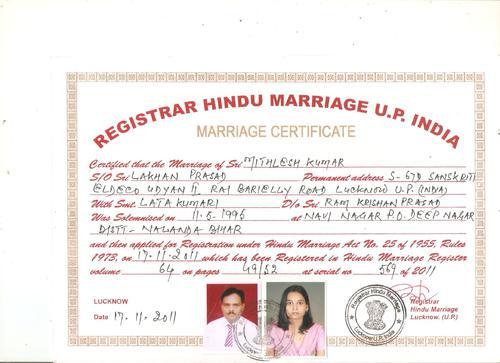 REGISTRAR HINDU MARRIAGE U.P. INDIA
MARRIAGE CERTIFICATE
Certified that the Marriage of Sri MITHLESH KUMAR
S/O Sri LAKHAN PRASAD Permanent address S-670 SANSKRITI
ELDECO UDYAN II RAI BARIELLY ROAD LUCKNOW U.P. (INDIA)
With Smt. LATA KUMARI D/o Sri RAM KRISHAN PRASAD
Was Solemnised on 11-6-1996 at NAVI NAGAR P.O. DEEP NAGAR
DISTT- NALANDA BIHAR
and then applied for Registration under Hindu Marriage Act No. 25 of 1955, Rules
1973, on 17-11-2011 which has been Registered in Hindu Marriage Register
volume 64 on pages 49/52 at serial no 569 of 2011
LUCKNOW
Date 17-11-2011
Registrar Hindu Marriage
Lucknow U.P.
Registrar
Hindu Marriage
Lucknow. (U.P.)